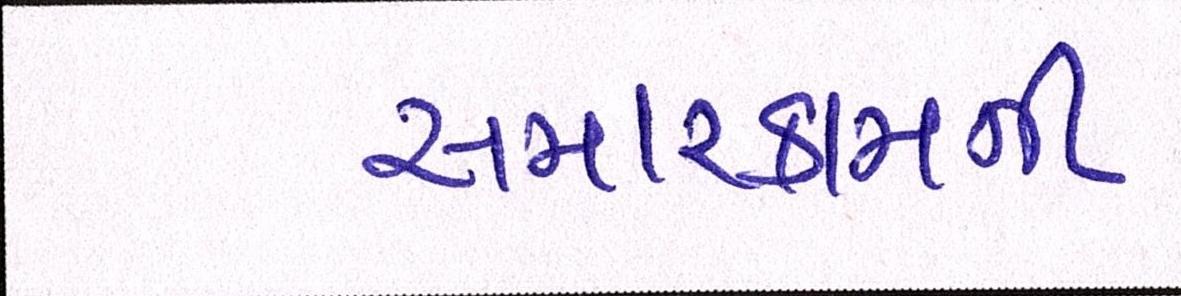 સમારકામની